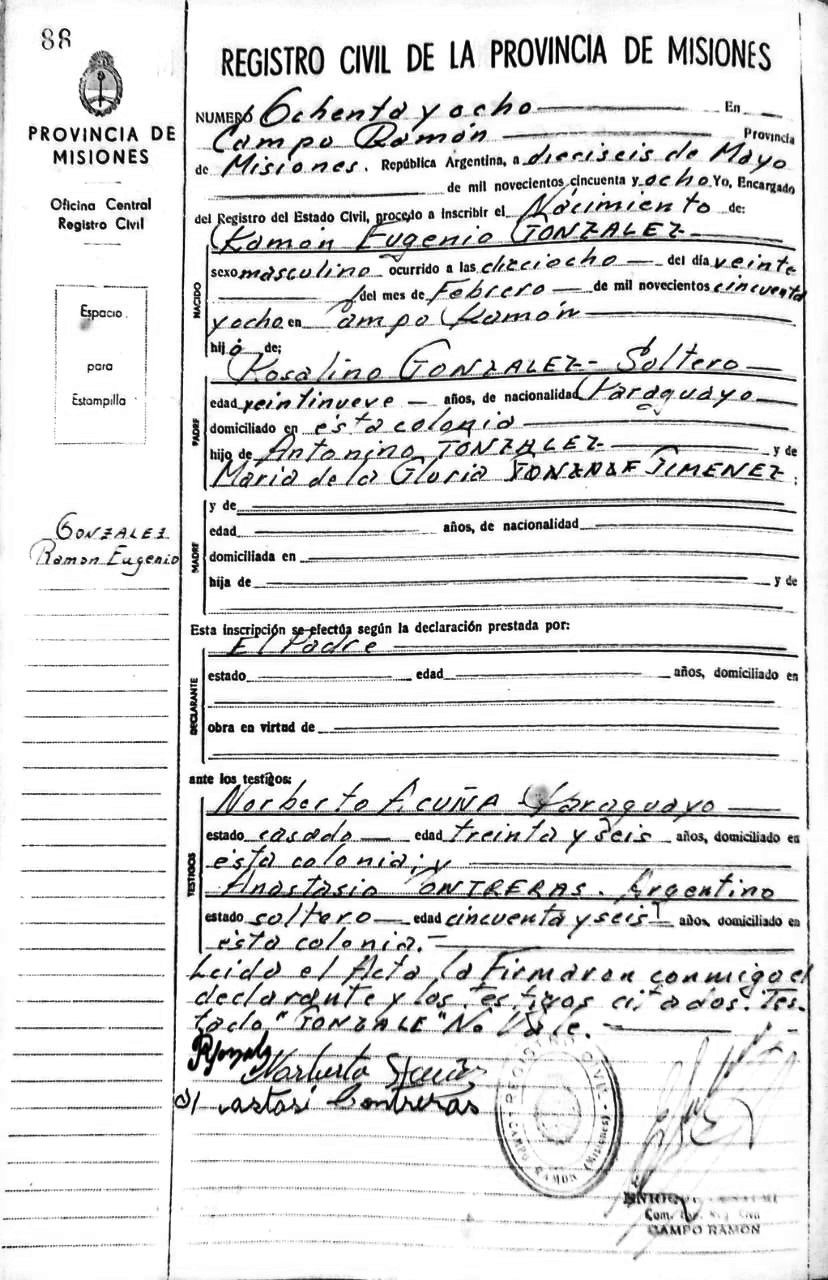 88
PROVINCIA DE
MISIONES
Oficina Central
Registro Civil
Espacio
para
Estampilla
GONZALEZ
Ramon Eugenio
REGISTRO CIVIL DE LA PROVINCIA DE MISIONES
NUMERO Ochenta y ocho En
Campo Ramón Provincia
de Misiones. República Argentina, a dieciseis de Mayo
de mil novecientos cincuenta y ocho Yo, Encargado
del Registro del Estado Civil, procedo a inscribir el Nacimiento de:
NACIDO
Ramón Eugenio GONZALEZ
sexo masculino ocurrido a las dieciocho del día veinte
del mes de Febrero de mil novecientos cincuenta
y ocho en Campo Ramón
hijo de:
PADRE
Rosalino GONZALEZ - Soltero
edad veintinueve años, de nacionalidad Paraguayo
domiciliado en ésta colonia
hijo de Antonino GONZALEZ y de
María de la Gloria GONZALE JIMENEZ;
MADRE
y de
edad años, de nacionalidad
domiciliada en
hija de y de
Esta inscripción se efectúa según la declaración prestada por:
El Padre
DECLARANTE
estado edad años, domiciliado en
obra en virtud de
ante los testigos:
TESTIGOS
Norberto ACUÑA Paraguayo
estado casado edad treinta y seis años, domiciliado en
ésta colonia; y
Anastasio CONTRERAS. Argentino
estado soltero edad cincuenta y seis años, domiciliado en
ésta colonia.-
Leida el Acta la Firmaron conmigo el
declarante y los testigos citados. Tes-
tado "GONZALE" No Vale.
Norberto
Contreras
REGISTRO CIVIL
CAMPO RAMON (Misiones)
CAMPO RAMON